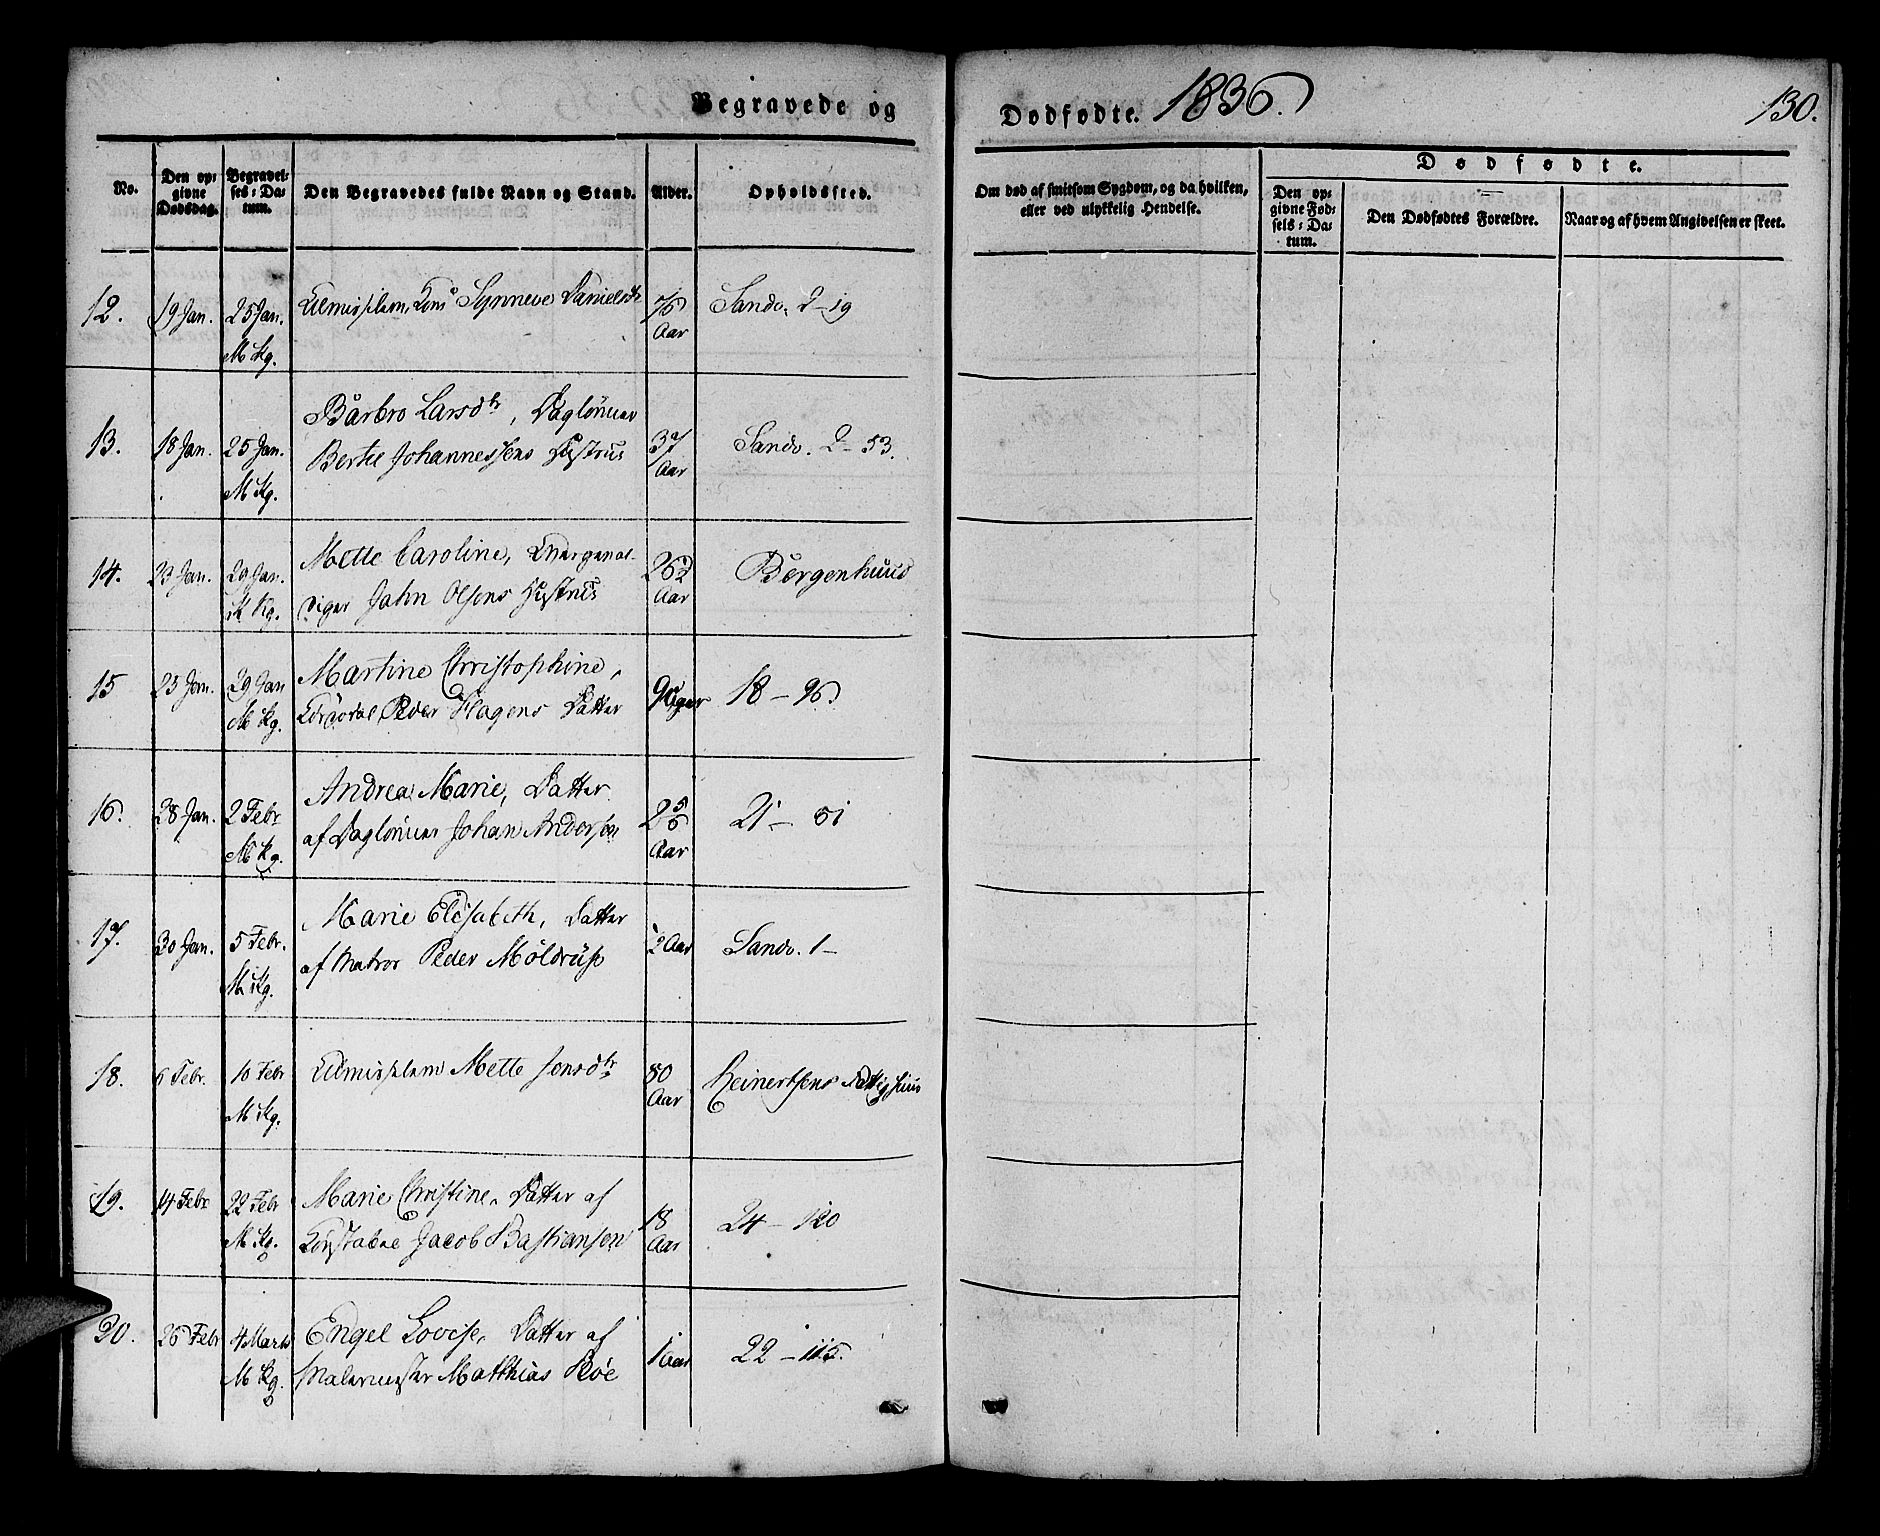 Begravede og
Dødfødte. 1836.
130.
No.
Den op-
givne
Dødsdag.
Begravel-
ses-Da-
tum.
Den Begravedes fulde Navn og Stand.
Alder.
Opholdssted.
Om død af smitsom Sygdom, og da hvilken,
eller ved ulykkelig Hendelse.
Dødfødte.
Den op-
givne Fød-
sels-Da-
tum.
Den Dødfødtes Forældre.
Naar og af hvem Angivelsen er skeet.
12. 19 Jan. 25 Jan. Synneve Danielsdr Sandv. 2-19
M Kg. Aar
13. 18 Jan. 25 Jan. Barbro Larsdtr, Daglønner 37 Sandv. 2-53.
M Kg. Johannessens Hustrue Aar
14. 23 Jan. 29 Jan. Mette Caroline, Bergenhuus
Kg. John Olsens Hustrue Aar
15 23 Jan. 29 Jan Martine Christophine,
M Kg. Peder Hagens Datter 18-96
16. 28 Jan. 2 Febr Andrea Marie, Datter 21- 51
M Kg. af Daglønner Johan Andersen Aar
17. 30 Jan. 5 Febr. Marie Elisabeth, Datter 2 Aar Sandv. 1-
M Kg. af Matros Peder Möldrup
18. 6 Febr. 10 Febr Almisselem Mette Jonsdtr 80 Reinertsens Fattighuus
M Kg. Aar
19. 14 Febr 22 Febr Marie Christine, Datter af 18 24-120
M Kg. Constabel Jacob Bastiansen Aar
20. 26 Febr 4 Marts Engel Lovise, Datter af 1 Aar 22-115.
M Kg. Malermester Matthias Röe